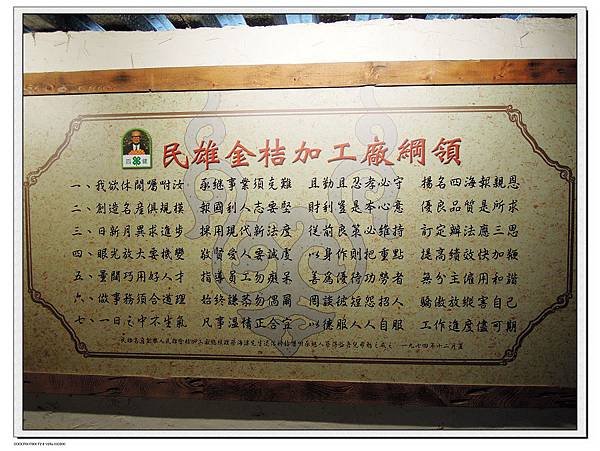 四健
民雄金桔加工廠綱領
一、我欲休閒囑咐汝　承继事業須克難　且勤且忍孝必守　揚名四海報親恩
二、創造名產俱規模　報國利人志要堅　財利豈是本心意　優良品質是所求
三、日新月異求進步　採用現代新法度　從前良策必維持　訂定辦法應三思
四、眼光放大要機變　敬賢受人要誠虔　以身作則把重點　提高績效快加鞭
五、量閎巧用好人才　指導員工勿癡呆　善為優待功勞者　無分主僱用和諧
六、做事務須合道理　始終謙恭勿偶爾　罔談彼短怨招人　驕傲放縱害自己
七、一日之中不生氣　凡事溫情正合宜　以德服人人自服　工作進度儘可期
一九七四年十二月